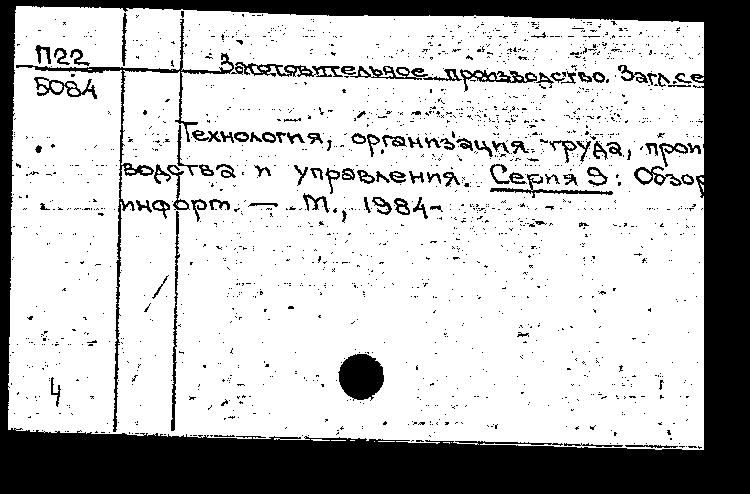 П22
Заготовительное производство. Загл.се
5084
Технология, организация труда, прои
водства и управления. Серия 9: Обзор
информ. — М., 1984-
4